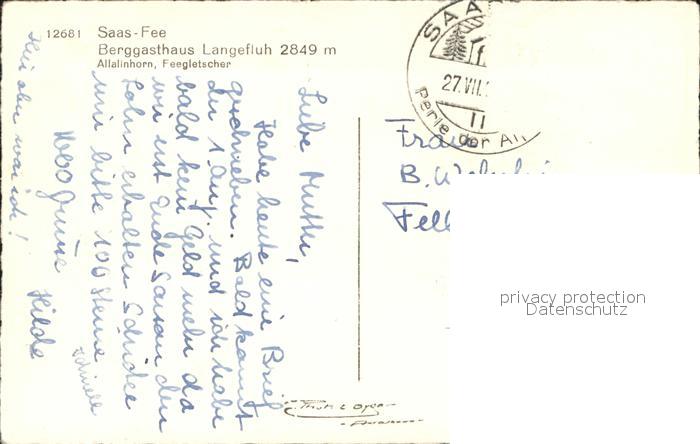 12681 Saas-Fee
Berggasthaus Langefluh 2849 m
Allalinhorn, Feegletscher
Liebe Mutter,
Habe heute eine Brief
geschrieben. Bald kommt
der 1 Aug. und ich habe
bald kein Geld mehr da
wir erst Ende Saison den
Lohn erhalten Schicke
mir bitte 100 Steine
schnell
1000 Grüsse
Hilde
war ich!
SAA
27.VII.
Perle der Al
Frau
B. W
Fell
privacy protection
Datenschutz